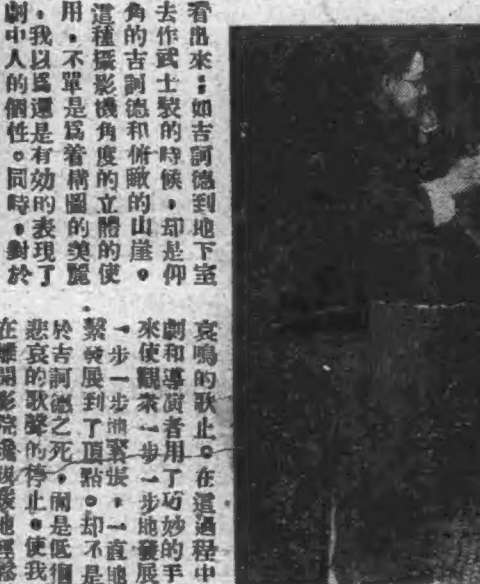 看出來：如吉訶德到地下室
去作武士裝的時候，却是仰
角的吉訶德和俯瞰的山崖。
這種攝影機角度的立體的使
用，不單是爲着構圖的美麗
，我以爲還是有効的表現了
劇中人的個性。同時，對於
哀鳴的歌止。在這過程中
劇和導演者用了巧妙的手
來使觀衆一步一步地發展
一步一步地緊張，一直地
緊發展到了頂點。却不是
於吉訶德之死，而是低徊
悲哀的歌聲的停止。使我
在離開影院